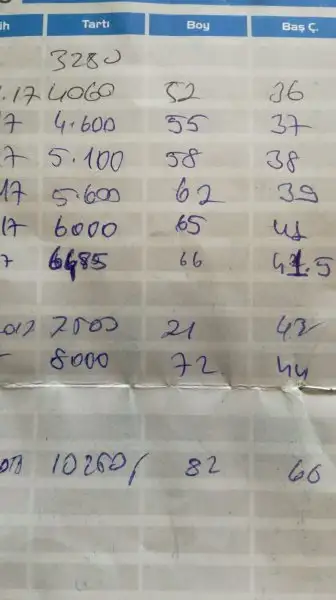 ih Tartı Boy Baş Ç.
3280
.17 4060 52 36
7 4.600 55 37
7 5.100 58 38
17 5.600 62 39
17 6000 65 41
7 6485 66 41.5
017 7500 71 43
8000 72 44
10260 82 46